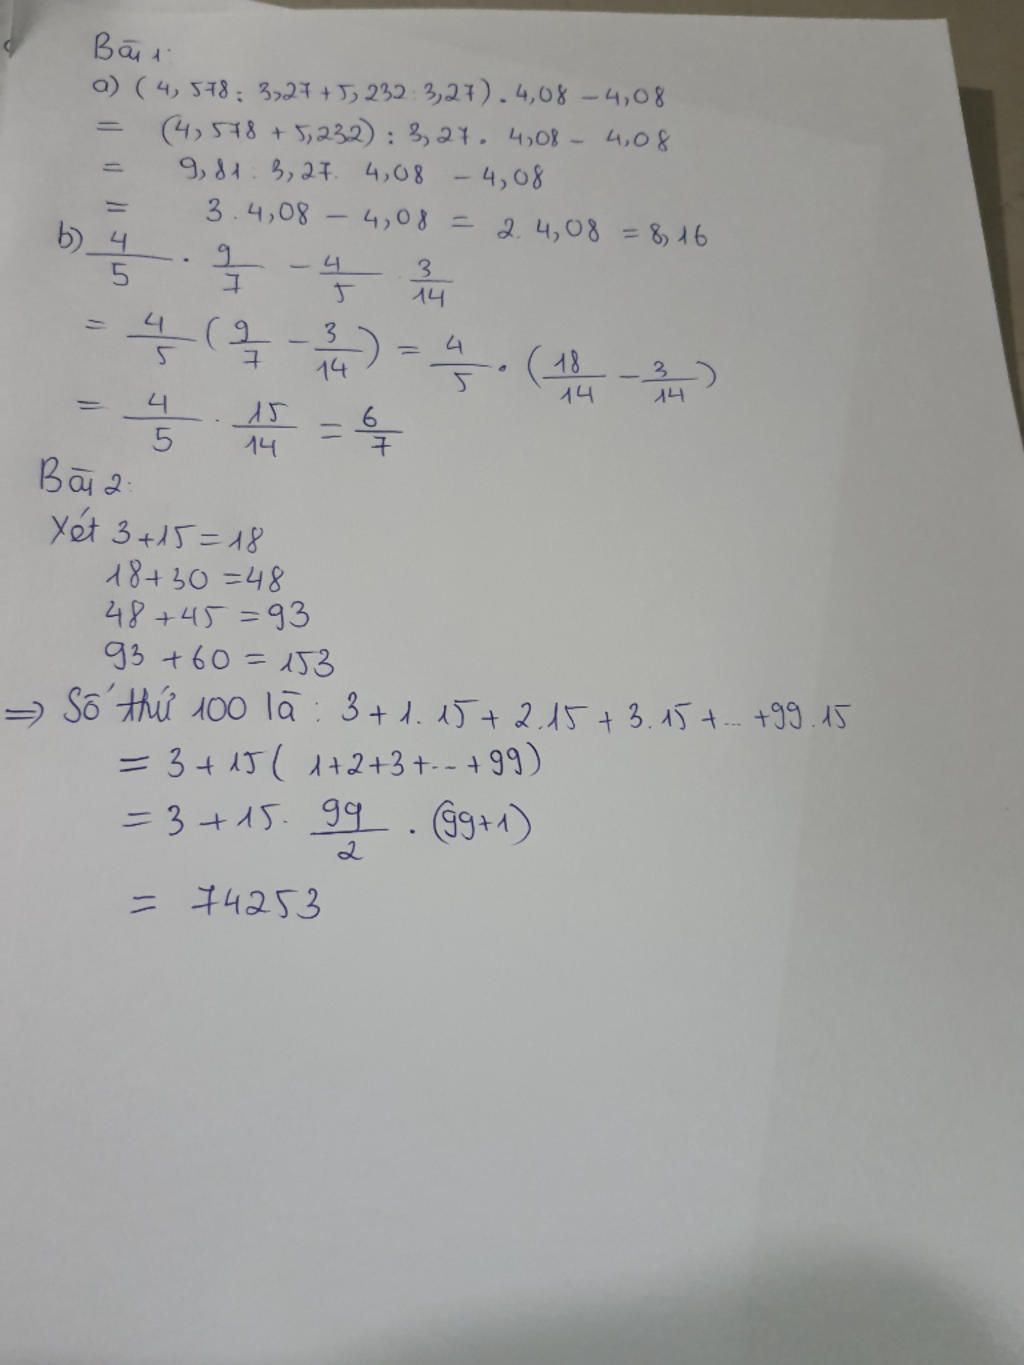 Bài 1:
a) (4,578 : 3,27 + 5,232 : 3,27) . 4,08 - 4,08
= (4,578 + 5,232) : 3,27 . 4,08 - 4,08
= 9,81 : 3,27 . 4,08 - 4,08
= 3 . 4,08 - 4,08 = 2 . 4,08 = 8,16
b) 4/5 . 9/7 - 4/5 . 3/14
= 4/5 (9/7 - 3/14) = 4/5 . (18/14 - 3/14)
= 4/5 . 15/14 = 6/7
Bài 2:
Xét 3 + 15 = 18
18 + 30 = 48
48 + 45 = 93
93 + 60 = 153
⇒ Số thứ 100 là : 3 + 1 . 15 + 2 . 15 + 3 . 15 + ... + 99 . 15
= 3 + 15 ( 1 + 2 + 3 + ... + 99)
= 3 + 15 . 99/2 . (99 + 1)
= 74253